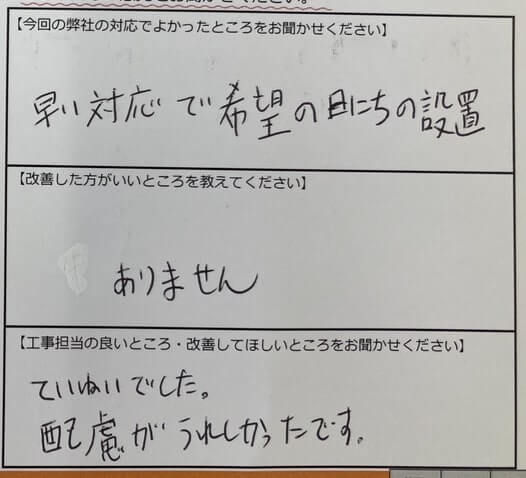 【今回の弊社の対応でよかったところをお聞かせください】
早い対応で希望の日にちの設置
【改善した方がいいところを教えてください】
ありません
【工事担当の良いところ・改善してほしいところをお聞かせください】
ていねいでした。
配慮がうれしかったです。